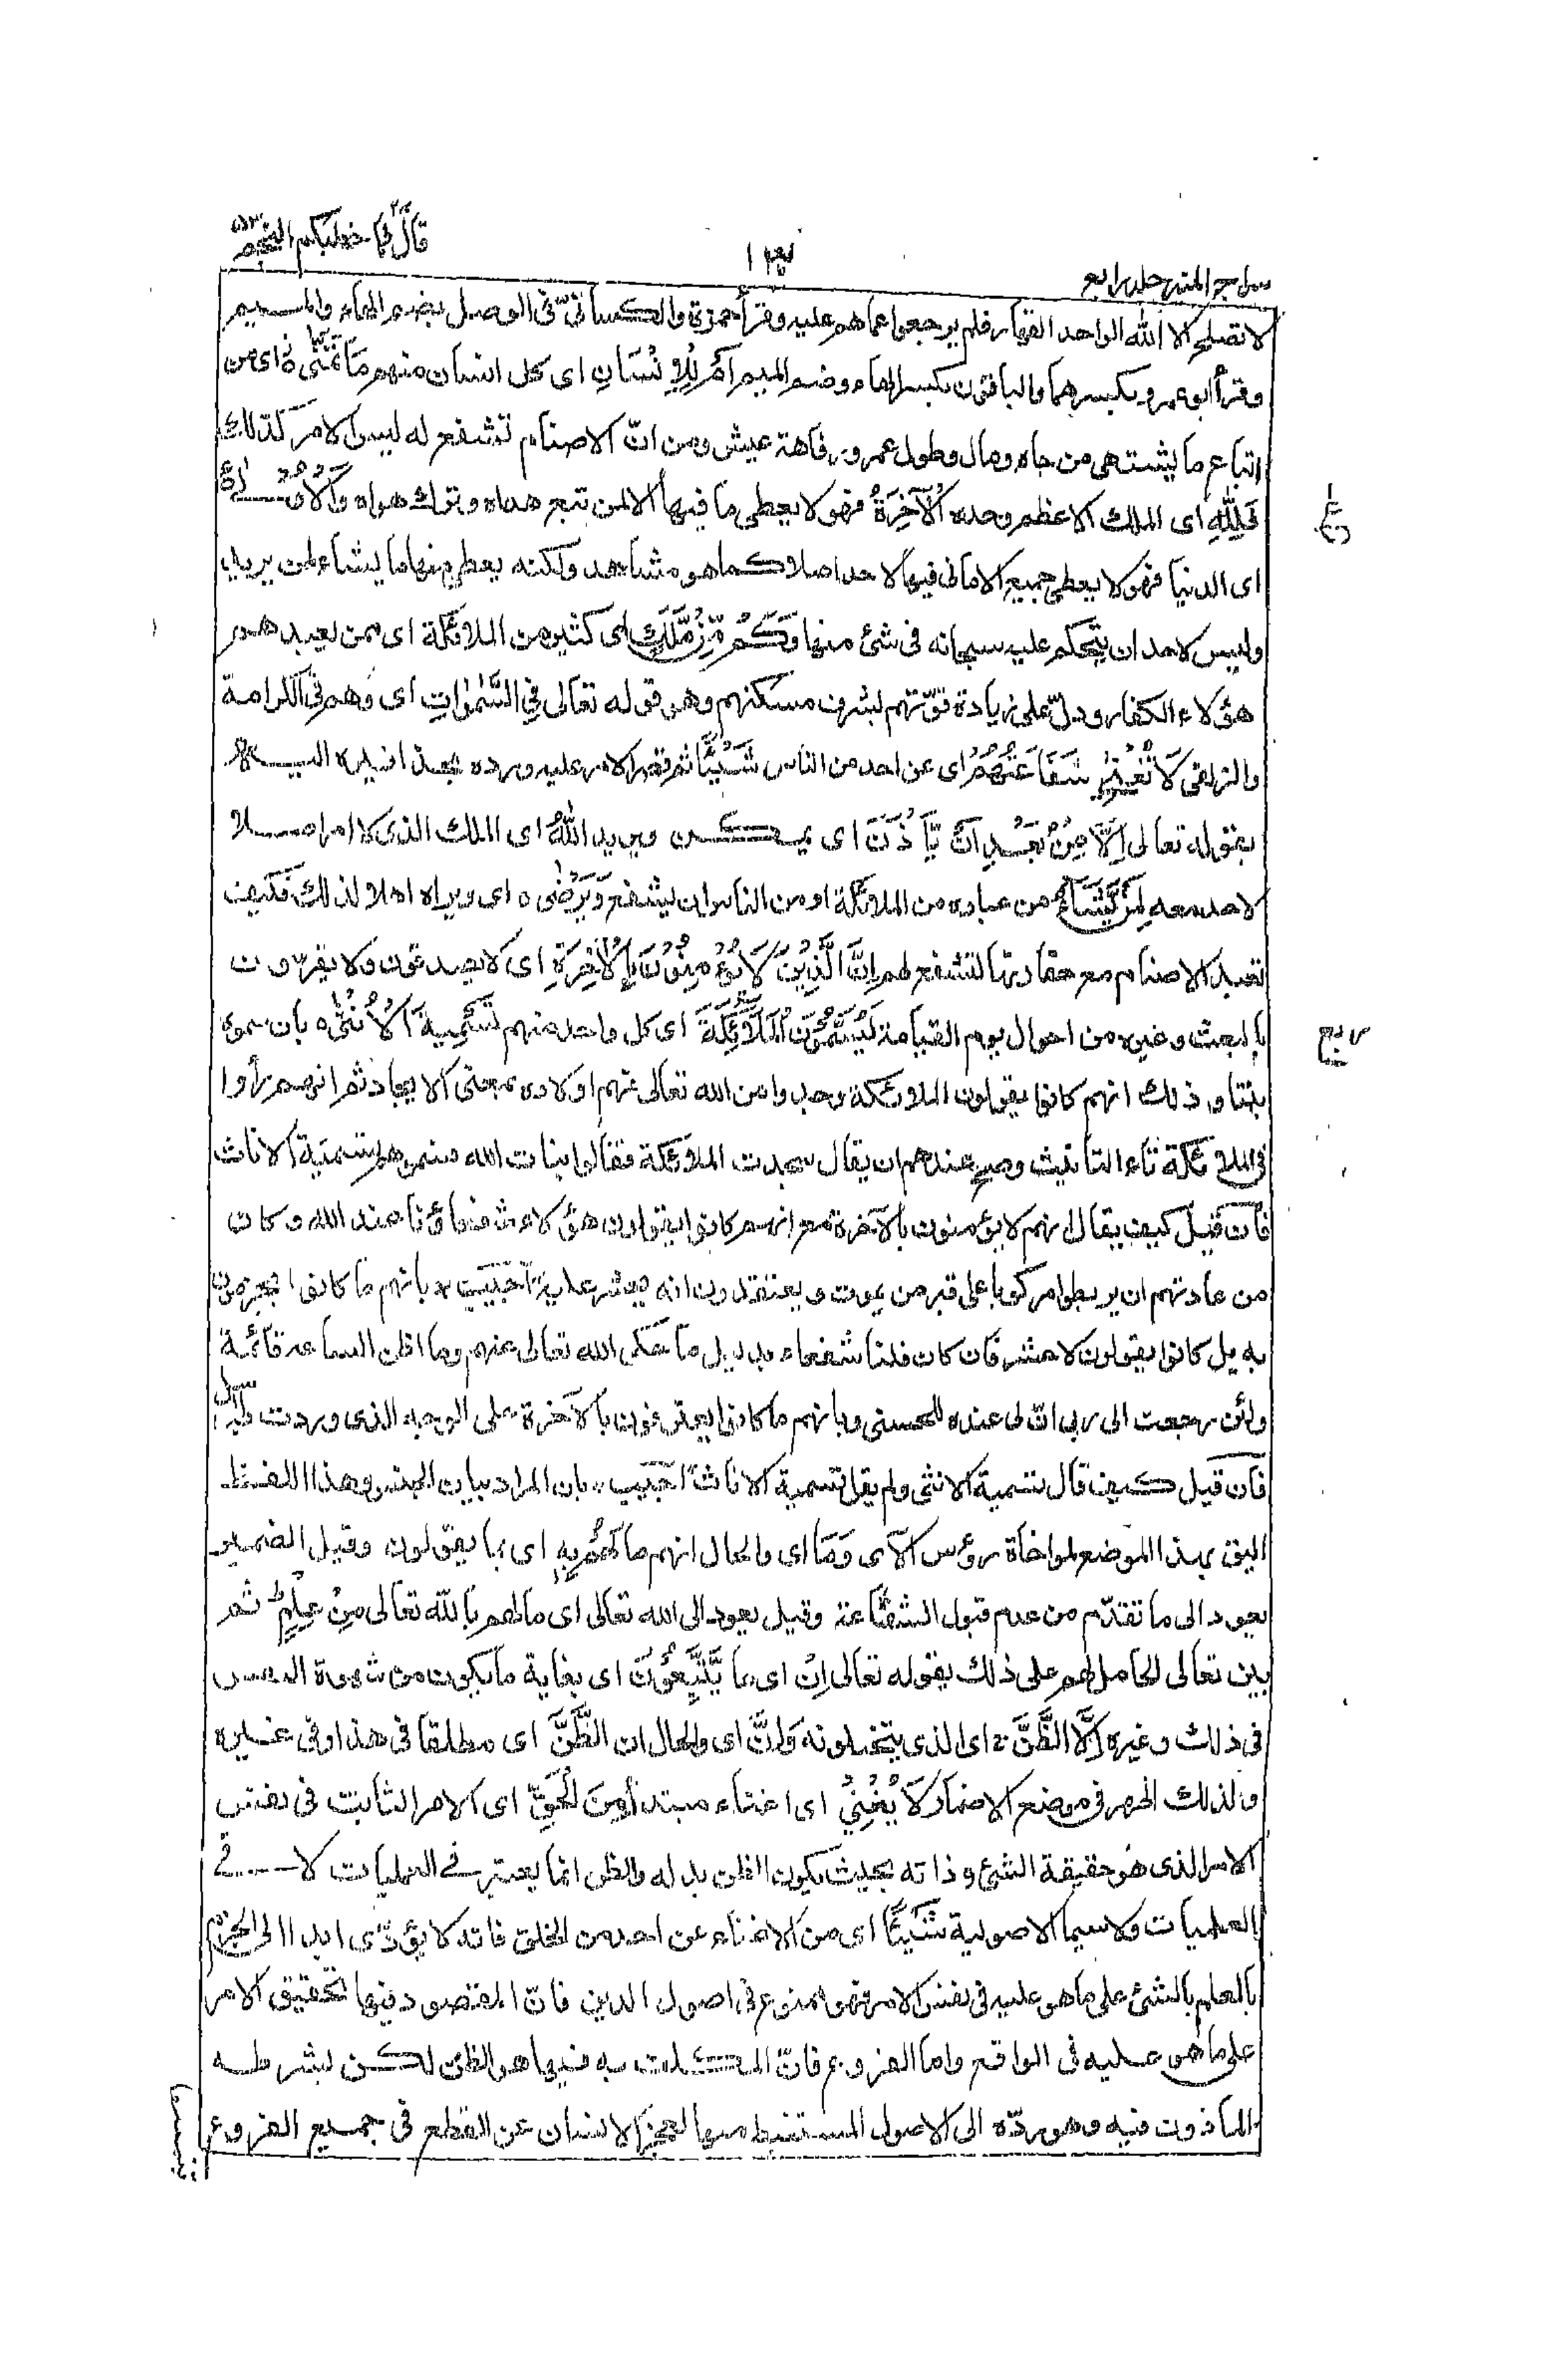 قال فما خطبكم النجم ٥٣
١٣٤
سراج المنیر جلد رابع
لا تصلح الا لله الواحد القهار فلم یرجعوا عما هم علیه وقرأ حمزة والکسائیّ فی الوصل بضم الهاء والمیم
وقرأ ابو عمرو بکسرهما والباقون بکسر الهاء وضم المیم اَمْ لِلْاِنْسَانِ ای کل انسان منهم مَا تَمَنّٰی ای من
اتباع ما یشتهی من جاه ومال وطول عمر ورفاهة عیش ومن انّ الاصنام تشفع له لیس الامر کذلك
فَلِلّٰهِ ای الملك الاعظم وحده الْاٰخِرَةُ فهو لا یعطی ما فیها الا لمن تبع هداه وترك هواه وَالْاُوْلٰی
ع
ای الدنیا فهو لا یعطی جمیع الامانی فیها لاحد اصلا کما هو مشاهد ولکنه یعطی منها ما یشاء لمن یرید
ولیس لاحد ان یتحکم علیه سبحانه فی شئ منها وَکَمْ مِّنْ مَّلَكٍ ای کثیر من الملائکة ای ممن یعبدهم
هؤلاء الکفار ودلّ علی زیادة قوّتهم بشرف مسکنهم وهو قوله تعالی فِی السَّمٰوٰاتِ ای وهم فی الکرامة
والزلفی لَا تُغْنِیْ شَفَاعَتُهُمْ ای عن احد من الناس شَیْئًا ثم قصر الامر علیه ورده بحذافیره الیه
بقوله تعالی اِلَّا مِنْ بَعْدِ اَنْ یَّاْذَنَ ای یمکن ویرید اللّٰهُ ای الملك الذی لا امر اصلا
لاحد معه لِمَنْ یَّشَآءُ من عباده من الملائکة او من الناس ان یشفع وَیَرْضٰی ای ویراه اهلا لذلك فکیف
تعبد الاصنام مع حقارتها لتشفع لهم اِنَّ الَّذِیْنَ لَا یُؤْمِنُوْنَ بِالْاٰخِرَةِ ای لا یصدقون ولا یقرّون
بالبعث وغیره من احوال یوم القیامة لَیُسَمُّوْنَ الْمَلَآئِکَةَ ای کل واحد منهم تَسْمِیَةَ الْاُنْثٰی بان سموه
ربع
بنتا وذلك انهم کانوا یقولون الملائکة وجدوا من الله تعالی فهم اولاده بمعنی الایجاد ثم انهم رأوا
فی الملائکة تاء التانیث وصح عندهم ان یقال سجدت الملائکة فقالوا بنات الله فسموهم تسمیة الاناث
فان قیل کیف یقال انهم لا یؤمنون بالآخرة مع انهم کانوا یقولون هؤلاء شفعاؤنا عند الله وکان
من عادتهم ان یربطوا مرکوبا علی قبر من یموت ویعتقدون انه یحشر علیه اجیب بانهم ما کانوا یجزمون
به بل کانوا یقولون لا حشر فان کان فلنا شفعاء بدلیل ما حکی الله تعالی عنهم وما اظن الساعة قآئمة
ولئن رجعت الی ربی انّ لی عنده للحسنی وبانهم ما کانوا یعترفون بالآخرة علی الوجه الذی وردت به الرسل
فان قیل کیف قال تسمیة الانثی ولم یقل تسمیة الاناث اجیب بان المراد بیان الجنس وهذا اللفظ
الیق بهذا الموضع لمواخاة رؤس الآی وَمَا ای والحال انهم ما لَهُمْ بِهٖ ای بما یقولون وقیل الضمیر
یعود الی ما تقدّم من عدم قبول الشفاعة وقیل یعود الی الله تعالی ای مالهم بالله تعالی مِنْ عِلْمٍ ثم
بین تعالی الحامل لهم علی ذلك بقوله تعالی اِنْ ای ما یَّتَّبِعُوْنَ ای بغایة ما یکون من شهوة النفس
فی ذلك وغیره اِلَّا الظَّنَّ ای الذی یتخیلونه وَاِنَّ ای والحال ان الظَّنَّ ای مطلقا فی هذا وفی غیره
ولذلك اظهر فی موضع الاضمار لَا یُغْنِیْ ای اغناء مبتدأ مِنَ الْحَقِّ ای الامر الثابت فی نفس
الامر الذی هو حقیقة الشئ وذاته بحیث یکون الظن بدله والظن انما یعتبر فی العملیات لا فی
العلمیات ولا سیما الاصولیة شَیْئًا ای من الاغناء عن احد من الخلق فانه لا یؤدّی ابدا الی الجزم
بالعلم بالشئ علی ما هو علیه فی نفس الامر فهو ممنوع فی اصول الدین فانّ المقصود فیها تحقیق الامر
علی ما هو علیه فی الواقع واما الفروع فانّ المکلف به فیها هو الظن لکن بشرطه
الماذون فیه وهو ردّه الی الاصول المستنبط منها لعجز الانسان عن القطع فی جمیع الفروع